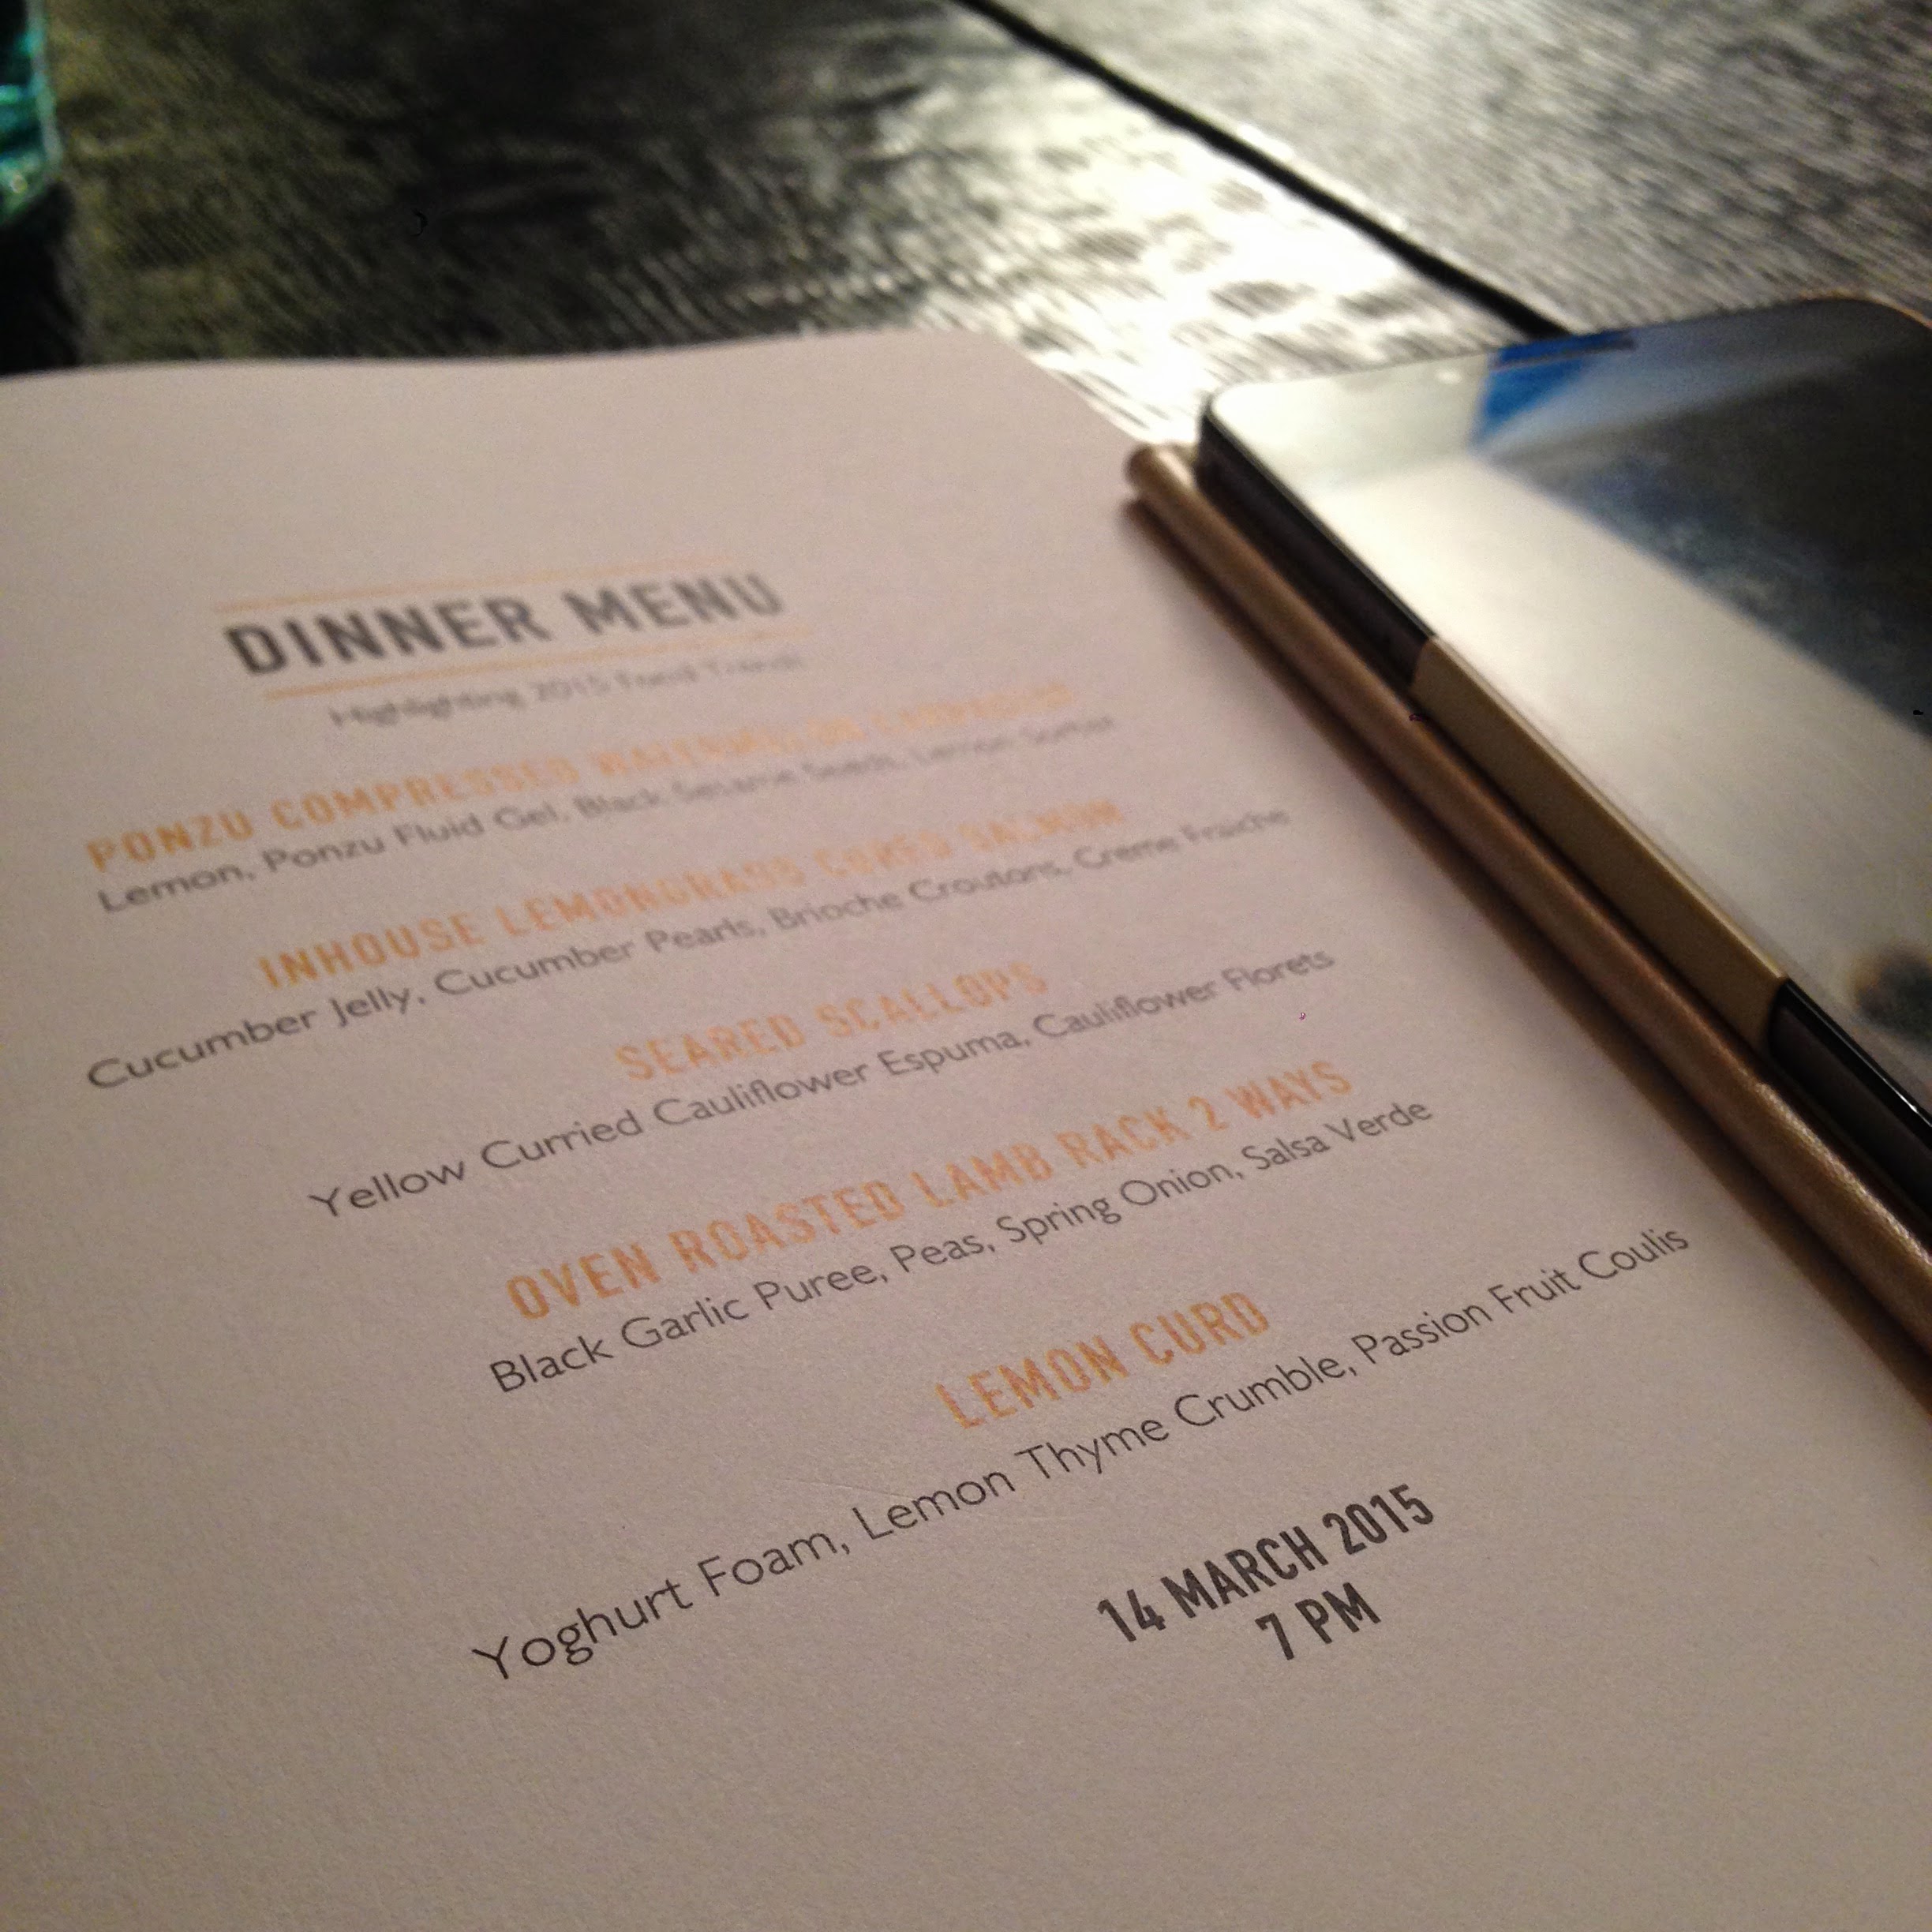 DINNER MENU
Highlighting 2015 Food Trends
PONZU COMPRESSED WATERMELON CARPACCIO
Lemon, Ponzu Fluid Gel, Black Sesame Seeds, Lemon Sorbet
INHOUSE LEMONGRASS CURED SALMON
Cucumber Jelly, Cucumber Pearls, Brioche Croutons, Creme Fraiche
SEARED SCALLOPS
Yellow Curried Cauliflower Espuma, Cauliflower Florets
OVEN ROASTED LAMB RACK 2 WAYS
Black Garlic Puree, Peas, Spring Onion, Salsa Verde
LEMON CURD
Yoghurt Foam, Lemon Thyme Crumble, Passion Fruit Coulis
14 MARCH 2015
7 PM